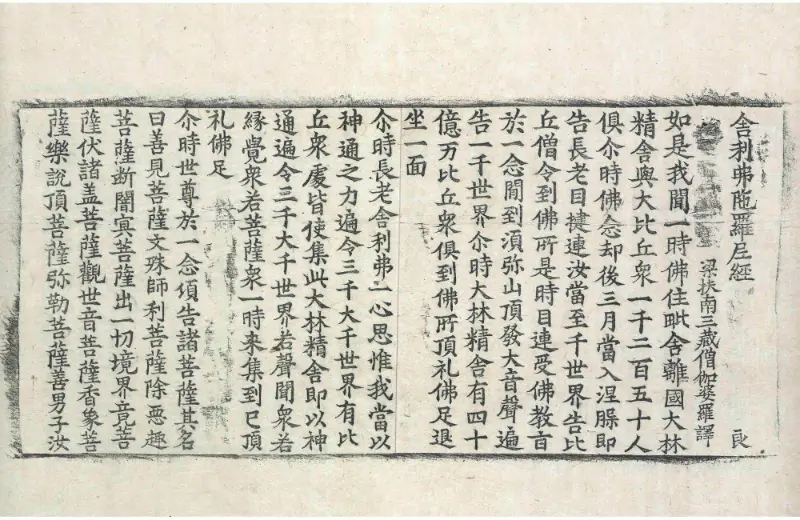 舍利弗陁羅尼經　良
梁扶南三藏僧伽婆羅譯
如是我聞一時佛住毗舍離國大林
精舍與大比丘衆一千二百五十人
俱尒時佛念却後三月當入涅槃即
告長老目揵連汝當至千世界告比
丘僧令到佛所是時目連受佛教言
於一念間到湏弥山頂發大音聲遍
告一千世界尒時大林精舍有四十
億万比丘衆俱到佛所頂礼佛足退
坐一面
尒時長老舍利弗一心思惟我當以
神通之力遍令三千大千世界有比
丘衆處皆使集此大林精舍即以神
通遍令三千大千世界若聲聞衆若
緣覺衆若菩薩衆一時來集到已頂
礼佛足
尒時世尊於一念頃告諸菩薩其名
曰善見菩薩文殊師利菩薩除惡趣
菩薩断闇冥菩薩出一切境界竟菩
薩伏諸盖菩薩觀世音菩薩香象菩
薩樂說頂菩薩弥勒菩薩善男子汝